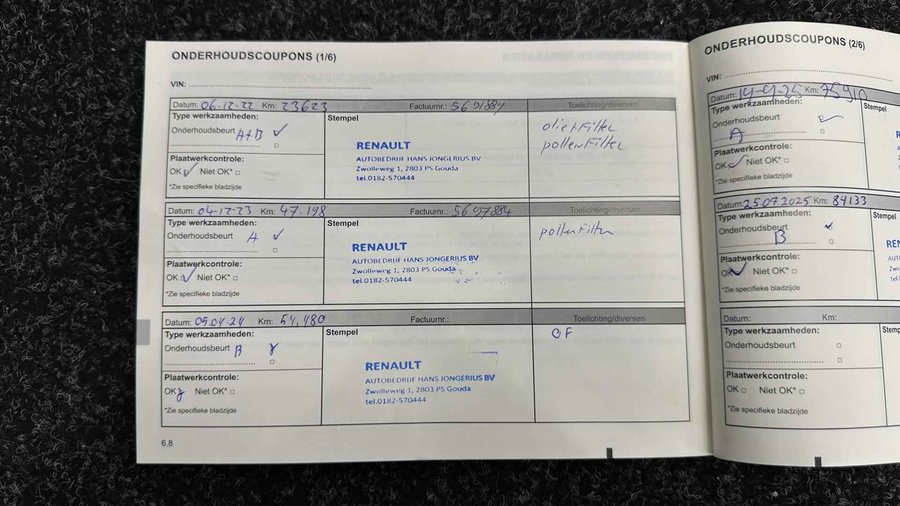 ONDERHOUDSCOUPONS (1/6)
VIN:
Datum: 06-12-22 Km: 23623 Factuurnr.: Toelichting/diversen
Type werkzaamheden: Stempel
Onderhoudsbeurt A+B ✓
oliefilter
pollenfilter
RENAULT
AUTOBEDRIJF HANS JONGERIUS BV
Zwolleweg 1, 2803 PS Gouda
tel.0182-570444
Plaatwerkcontrole:
OK ✓ Niet OK* □
*Zie specifieke bladzijde
Datum: 04-12-23 Km: 47.198 Factuurnr.: Toelichting/diversen
Type werkzaamheden: Stempel
Onderhoudsbeurt A ✓
pollenfilter
RENAULT
AUTOBEDRIJF HANS JONGERIUS BV
Zwolleweg 1, 2803 PS Gouda
tel.0182-570444
Plaatwerkcontrole:
OK ✓ Niet OK* □
*Zie specifieke bladzijde
Datum: 05-04-24 Km: 54,480 Factuurnr.: Toelichting/diversen
Type werkzaamheden: Stempel
Onderhoudsbeurt B
OF
RENAULT
AUTOBEDRIJF HANS JONGERIUS BV
Zwolleweg 1, 2803 PS Gouda
tel.0182-570444
Plaatwerkcontrole:
OK Niet OK* □
*Zie specifieke bladzijde
6.8
ONDERHOUDSCOUPONS (2/6)
VIN:
Datum: Km: 75910
Type werkzaamheden: Stempel
Onderhoudsbeurt ✓
A
Plaatwerkcontrole:
OK ✓ Niet OK* □
*Zie specifieke bladzijde
Datum: 25.07.2025 Km: 84133
Type werkzaamheden: Stempel
Onderhoudsbeurt ✓
B
Plaatwerkcontrole:
OK ✓ Niet OK* □
*Zie specifieke bladzijde
Datum: Km:
Type werkzaamheden:
Onderhoudsbeurt □
Plaatwerkcontrole:
OK □ Niet OK* □
*Zie specifieke bladzijde